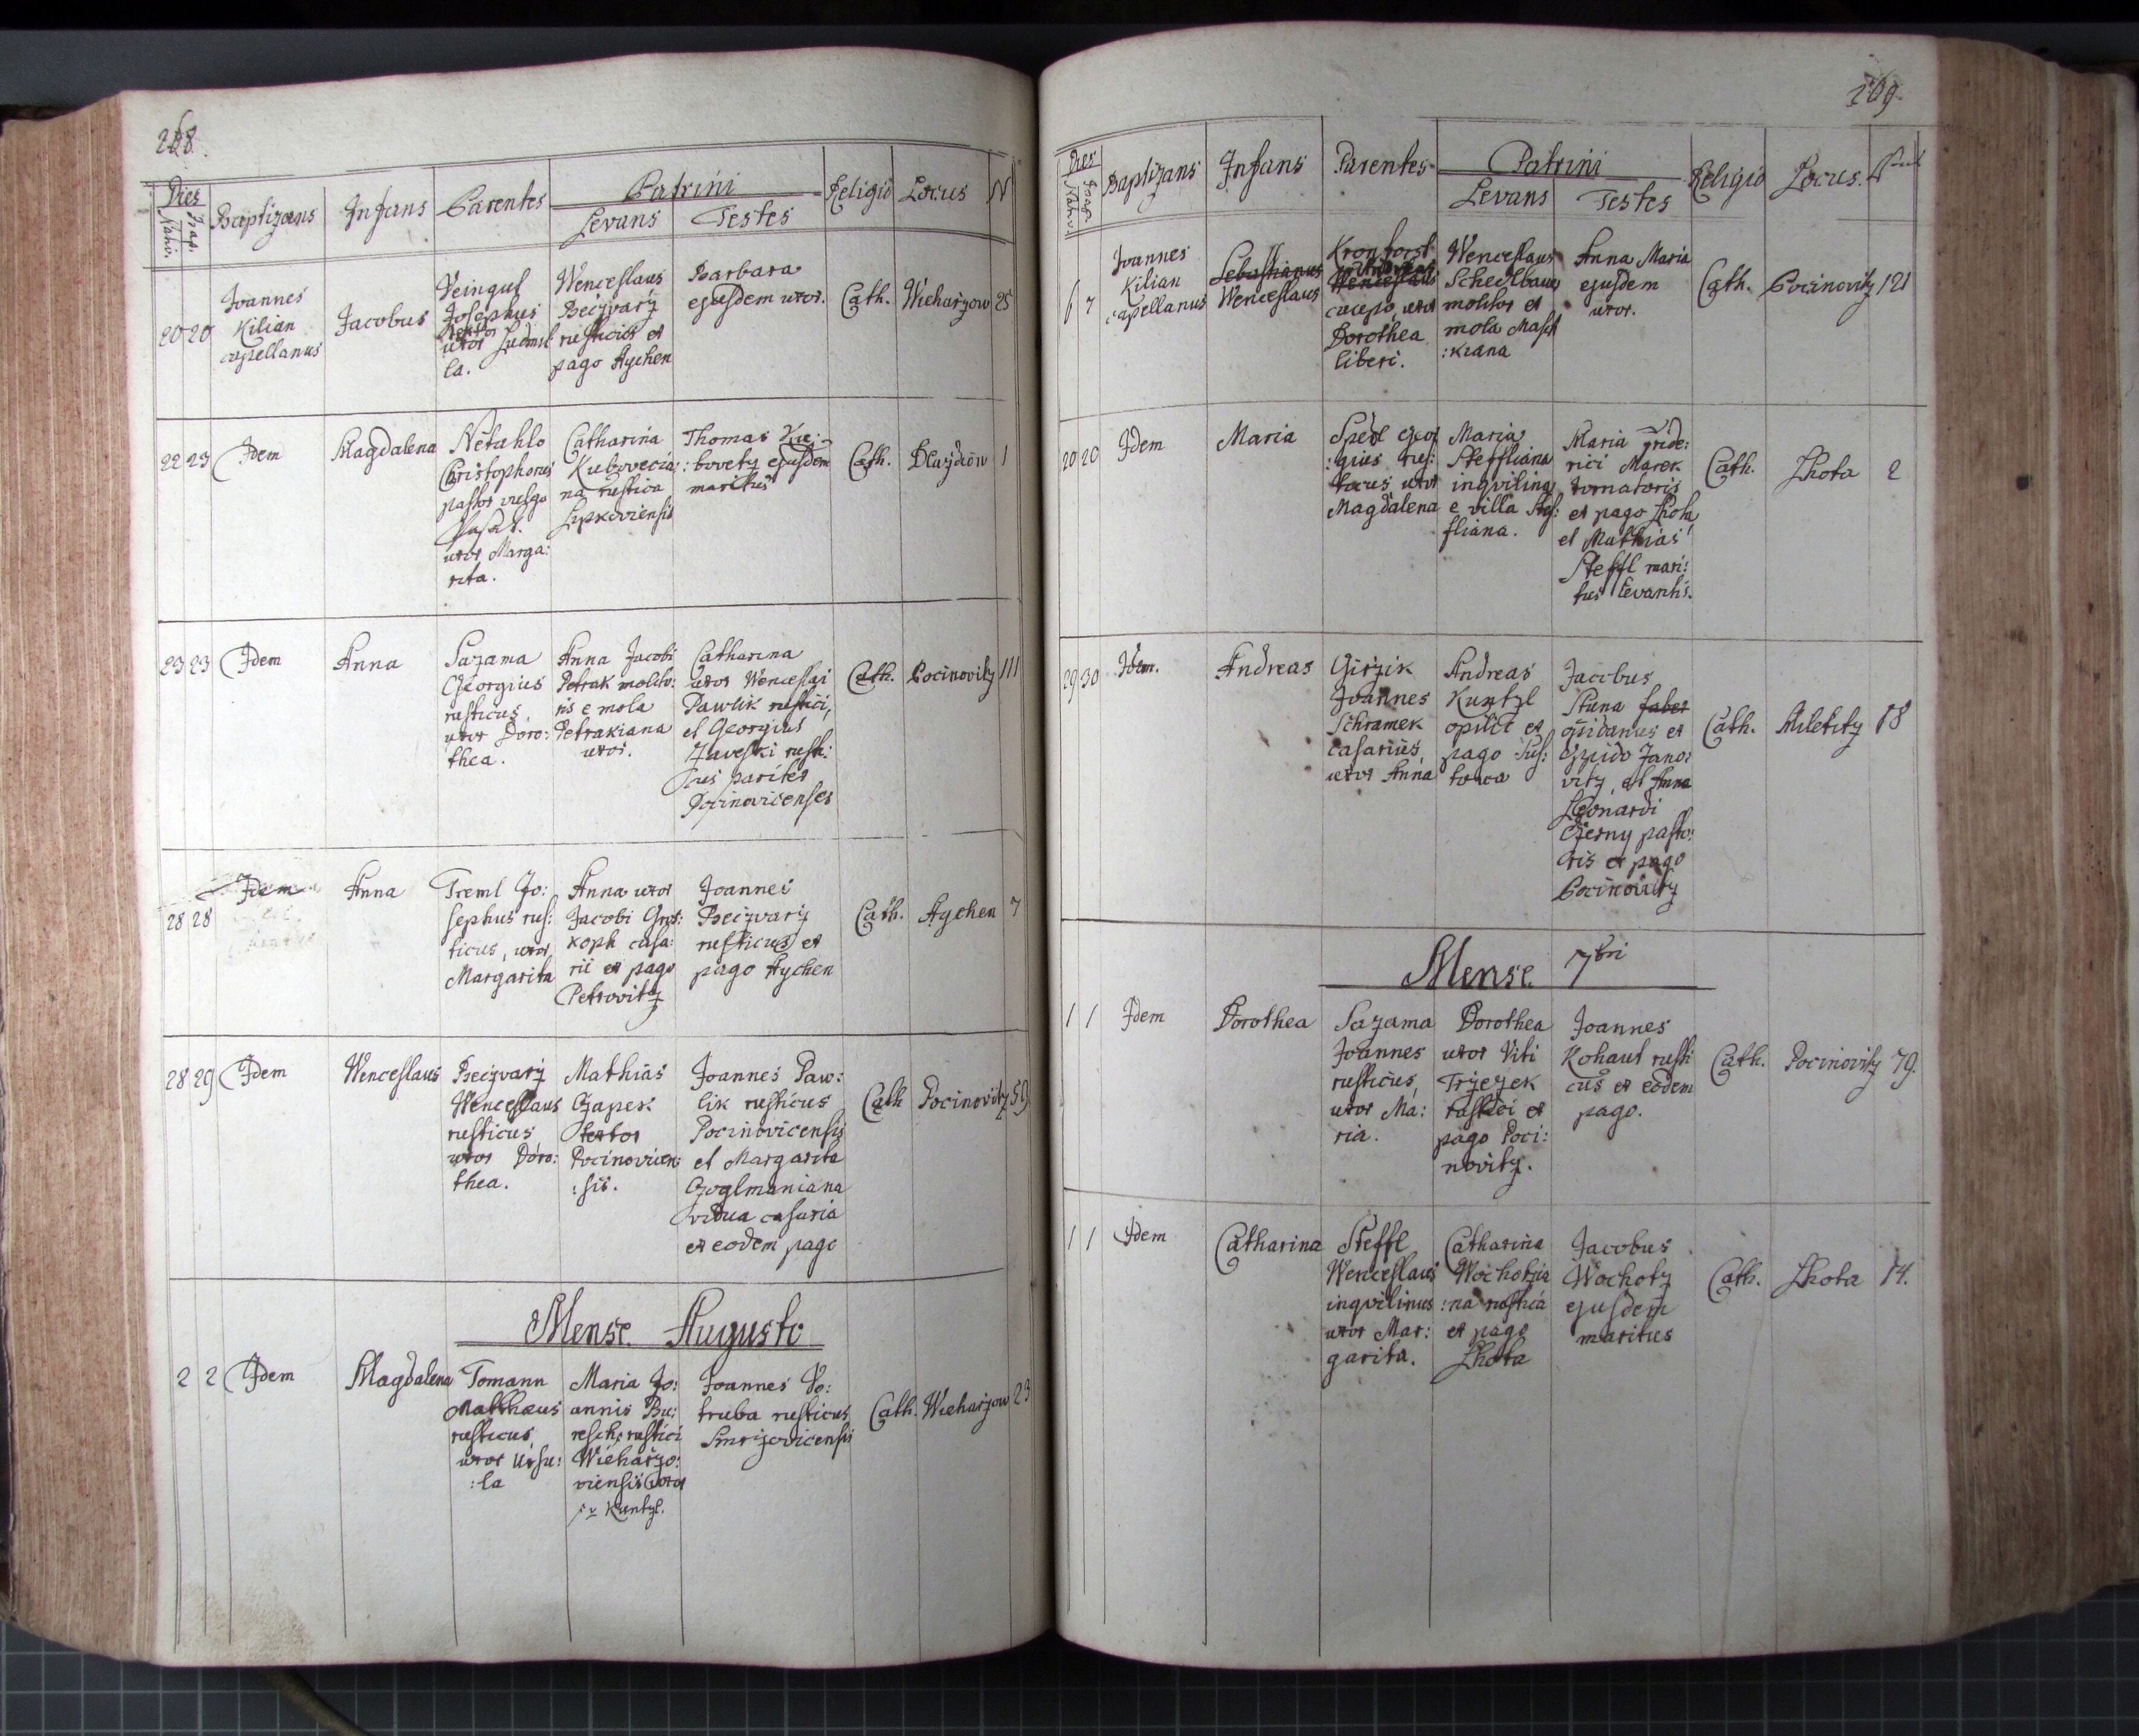 268.
Dies
Nativ. Bap.
Baptizans
Infans
Parentes
Patrini
Levans
Testes
Religio
Locus
N
20 20
Joannes
Kilian
capellanus
Jacobus
Veingul
Josephus
textor
uxor Ludmil
la.
Wenceslaus
Beczvarz
rusticus ex
pago Aychen
Barbara
ejusdem uxor.
Cath.
Wieharzow
25
22 23
Idem
Magdalena
Netahlo
Christophorus
pastor vulgo
uxor Marga:
rita.
Catharina
Kubovecia:
na rustica
Lupkoviensis
Thomas Ku:
:bovetz ejusdem
maritus
Cath.
Dlazdiow
1
23 23
Idem
Anna
Sazama
Georgius
rusticus,
uxor Doro:
thea.
Anna Jacobi
Petrak molito:
ris e mola
Petrakiana
uxor.
Catharina
uxor Wenceslai
Pawlik rustici,
et Georgius
rusti:
cus pariter
Pocinovicenses
Cath.
Pocinovitz
111
28 28
Idem
Anna
Treml Jo:
sephus rus:
ticus, uxor
Margarita
Anna uxor
Jacobi Gros:
koph casa:
rii ex pago
Petrovitz
Joannes
Beczvarz
rusticus ex
pago Aychen
Cath.
Aychen
7
28 29
Idem
Wenceslaus
Beczvarz
Wenceslaus
rusticus
uxor Doro:
thea.
Mathias
Czapek
textor
Pocinovicen:
:sis.
Joannes Paw:
lik rusticus
Pocinovicensis
et Margarita
Czoglmaniana
vidua casaria
ex eodem pago
Cath
Pocinovitz
59
Mense Augusto
2 2
Idem
Magdalena
Tomann
Matthaeus
rusticus,
uxor Ursu:
:la
Maria Jo:
annis Bu:
resch rustici
Wieharzo:
viensis uxor
Kuntzl.
Joannes Po:
truba rusticus
Smrzovicensis
Cath.
Wieharzow
23
269.
Dies
Nativ. Bap.
Baptizans
Infans
Parentes
Patrini
Levans
Testes
Religio
Locus.
6 7
Joannes
Kilian
capellanus
Sebastianus
Wenceslaus
Kronforst
Wenceslaus
uxor
Dorothea
liberi.
Wenceslaus
Scheelbaur
molitor ex
mola Masst
:kiana
Anna Maria
ejusdem
uxor.
Cath.
Pocinovitz
121
20 20
Idem
Maria
Spedl Geor
:gius rus:
ticus uxor
Magdalena
Maria
Steffliana
inqvilina
e villa Stef:
fliana.
Maria Fride:
rici Marek
tornatoris
ex pago Lhota
et Mathias
Steffl mari:
tus levantis.
Cath.
Lhota
2
29 30
Idem.
Andreas
Girzik
Joannes
Schramek
casarius,
uxor Anna
Andreas
Kuntzl
opilio ex
pago Sus:
towa
Jacobus
Stuna faber
oppidanus ex
oppido Jano:
vitz, et Anna
Leonardi
Czerny pasto:
ris ex pago
Pocinovitz
Cath.
Miletitz
18
Mense 7bri
1 1
Idem
Dorothea
Sazama
Joannes
rusticus,
uxor Ma:
ria.
Dorothea
uxor Viti
Trzezek
rustici ex
pago Poci:
novitz.
Joannes
Kohaut rusti
cus ex eodem
pago.
Cath.
Pocinovitz
79.
1 1
Idem
Catharina
Steffl
Wenceslaus
inqvilinus
uxor Mar:
garita.
Catharina
Wochotzia
:na rustica
ex pago
Lhota
Jacobus
Wochotz
ejusdem
maritus
Cath.
Lhota
14.